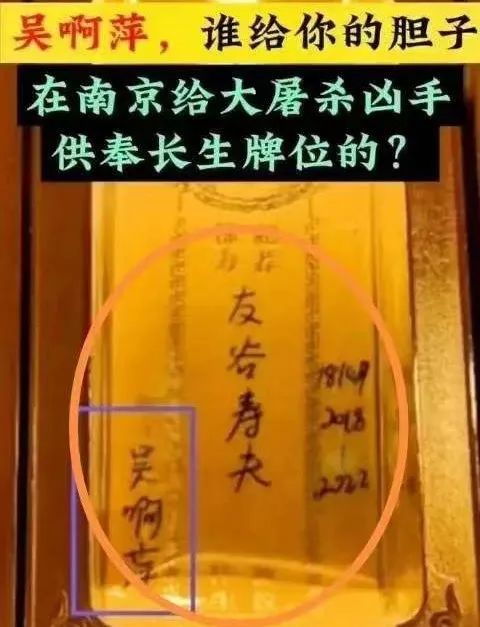 吴啊萍，谁给你的胆子
在南京给大屠杀凶手
供奉长生牌位的？
友谷寿夫
2018
2022
吴啊萍